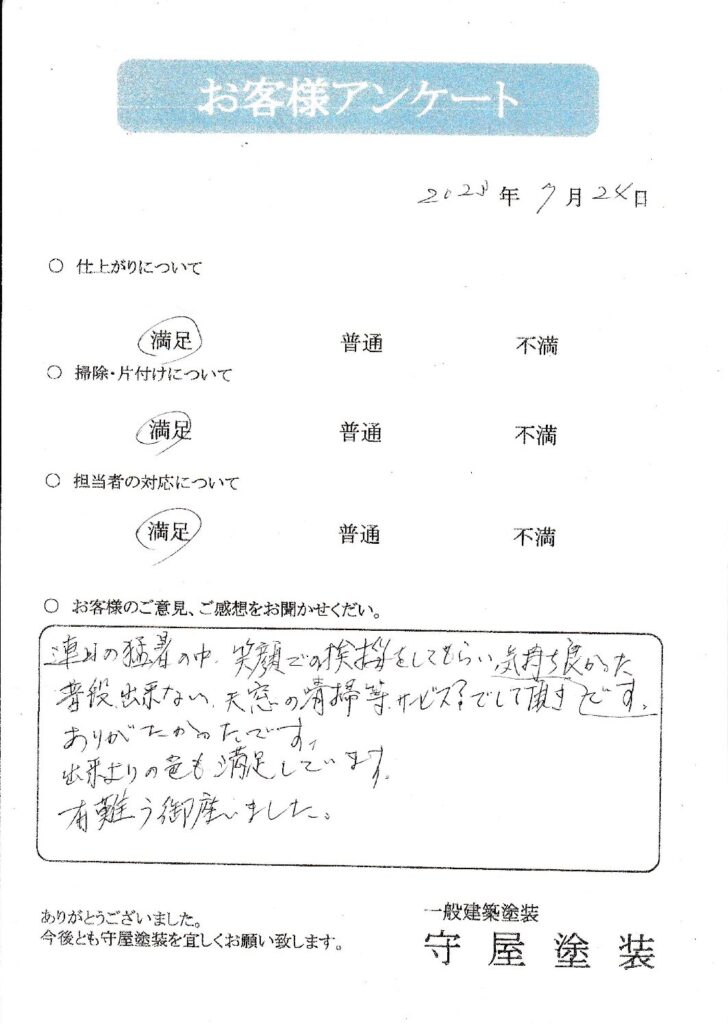 お客様アンケート
2023年 7月24日
○ 仕上がりについて
満足 普通 不満
○ 掃除・片付けについて
満足 普通 不満
○ 担当者の対応について
満足 普通 不満
○ お客様のご意見、ご感想をお聞かせくだい。
連日の猛暑の中、笑顔での挨拶をしてもらい気持ち良かった
普段出来ない、天窓の清掃等、サービス?でして頂き です。
ありがたかったです。
出来上りの色も満足しています。
有難う御座いました。
ありがとうございました。
今後とも守屋塗装を宜しくお願い致します。
一般建築塗装
守屋塗装